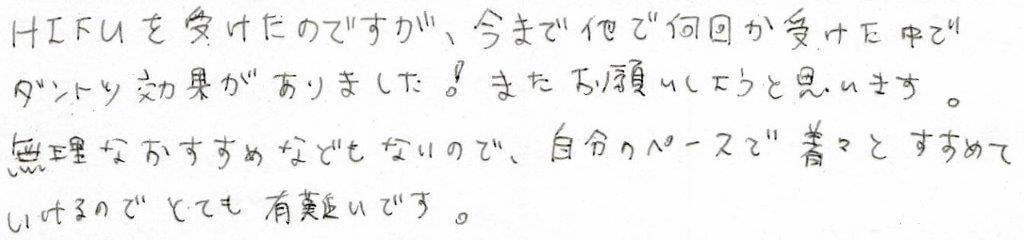 HIFUを受けたのですが、今まで他で何回か受けた中で
ダントツ効果がありました！またお願いしようと思います。
無理なおすすめなどもないので、自分のペースで着々とすすめて
いけるのでとても有難いです。